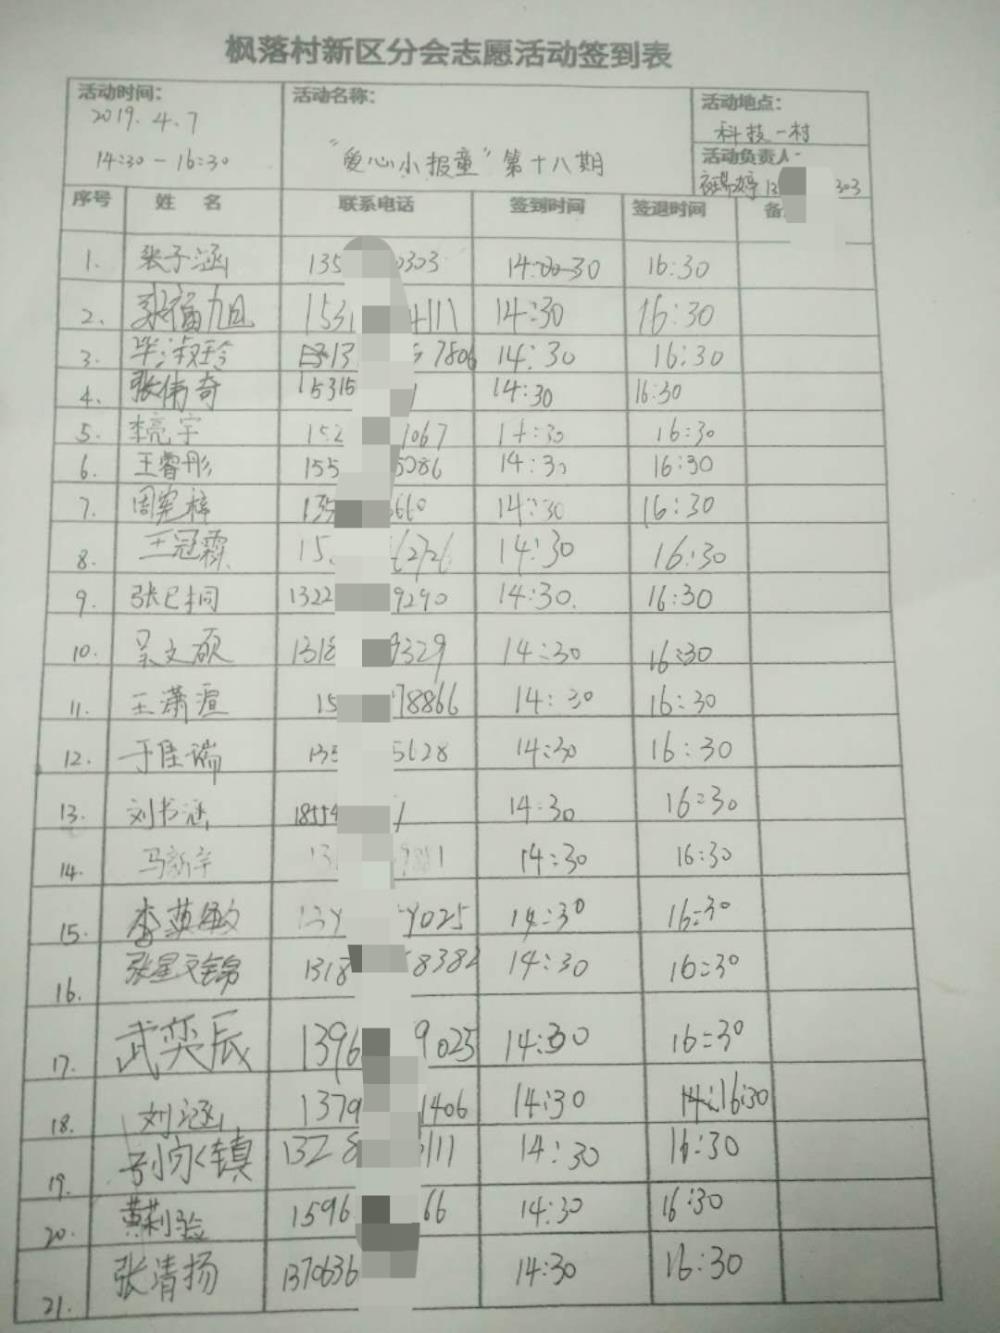 枫落村新区分会志愿活动签到表
活动时间: 活动名称: 活动地点:
2019.4.7 科技一村
14:30-16:30 "爱心小报童"第十八期 活动负责人:
13 303
序号 姓 名 联系电话 签到时间 签退时间 备
1. 张子涵 135 0303 14:00 30 16:30
2. 张福旭 1531 4111 14:30 16:30
3. 毕淑玲 13 7806 14:30 16:30
4. 张伟奇 15315 1 14:30 16:30
5. 李亮宇 152 1067 14:30 16:30
6. 王睿彤 155 5086 14:30 16:30
7. 周宪梓 135 6660 14:30 16:30
8. 王冠霖 15 62726 14:30 16:30
9. 张已桐 1322 9290 14:30. 16:30
10. 吴文硕 1318 9329 14:30 16:30
11. 王潇渲 15 78866 14:30 16:30
12. 于佳瑞 135 5628 14:30 16:30
13. 刘书涵 18554 1 14:30 16:30
14. 马新宇 13 9811 14:30 16:30
15. 李英敏 139 9025 14:30 16:30
16. 张星文锦 1318 58382 14:30 16:30
17. 武奕辰 1396 9025 14:30 16:30
18. 刘涵 1379 1406 14:30 14: 16:30
19. 镇 1328 3111 14:30 16:30
20. 黄莉 1596 66 14:30 16:30
21. 张清扬 1370636 14:30 16:30